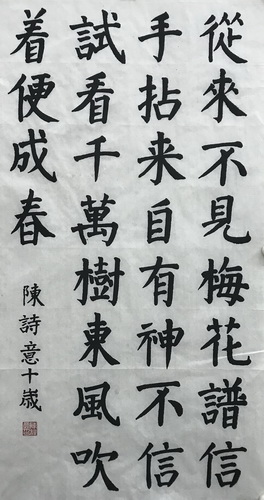 從來不見梅花譜信
手拈来自有神不信
試看千萬樹東風吹
着便成春
陳詩意十歲